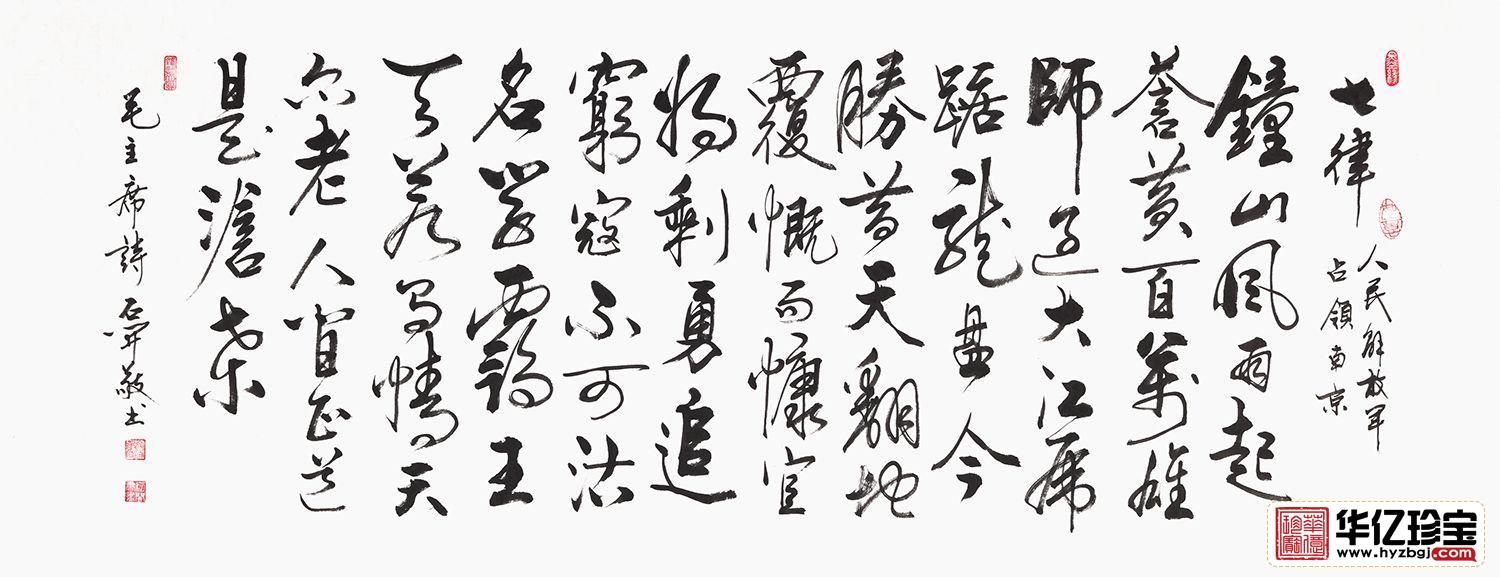 七律
人民解放军
占領南京
鐘山風雨起
蒼黄百萬雄
師过大江虎
踞龍盘今
勝昔天翻地
覆慨而慷宜
将剩勇追
窮寇不可沽
名学霸王
天若有情天
亦老人间正道
是滄桑
毛主席詩 石 敬书
华亿珍宝
www.hyzbgj.com